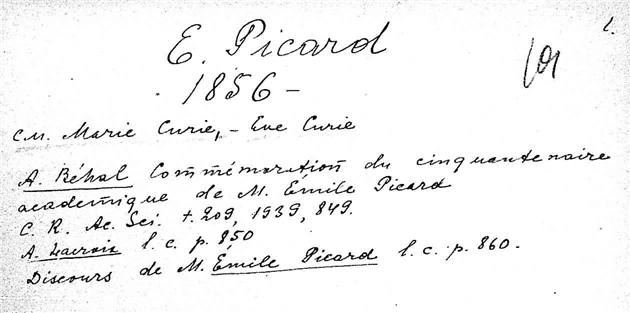 1.
E. Picard
1856 -
101
см. Marie Curie, - Eve Curie
A. Béhal Commémoration du cinquantenaire
academique de M. Emile Picard
C. R. Ac. Sci. t. 209, 1939, 849.
A. Lacroix l. c. p. 850
Discours de M. Emile Picard l. c. p. 860.